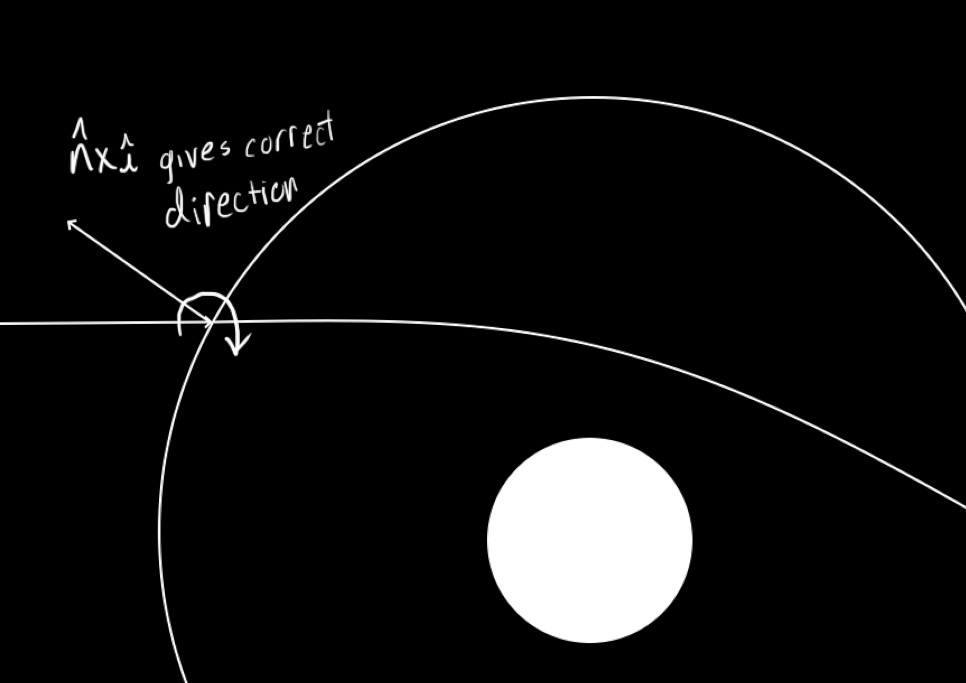 n̂×î gives correct
direction